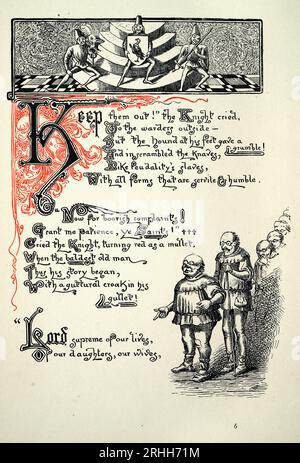 Keep them out!" the Knight cried,
To the warders outside —
But the hound at his feet gave a
grumble!
And in scrambled the knaves,
Like feudality's slaves,
With all forms that are servile & humble.
Now for boorish complaints!
Grant me patience, ye Saints!"
Cried the Knight, turning red as a mullet,
When the baldest old man
Thus his story began,
With a guttural croak in his
gullet!
"Lord supreme of our lives,
Of our daughters, our wives,
6
alamy
Image ID: 2RHH71M
www.alamy.com